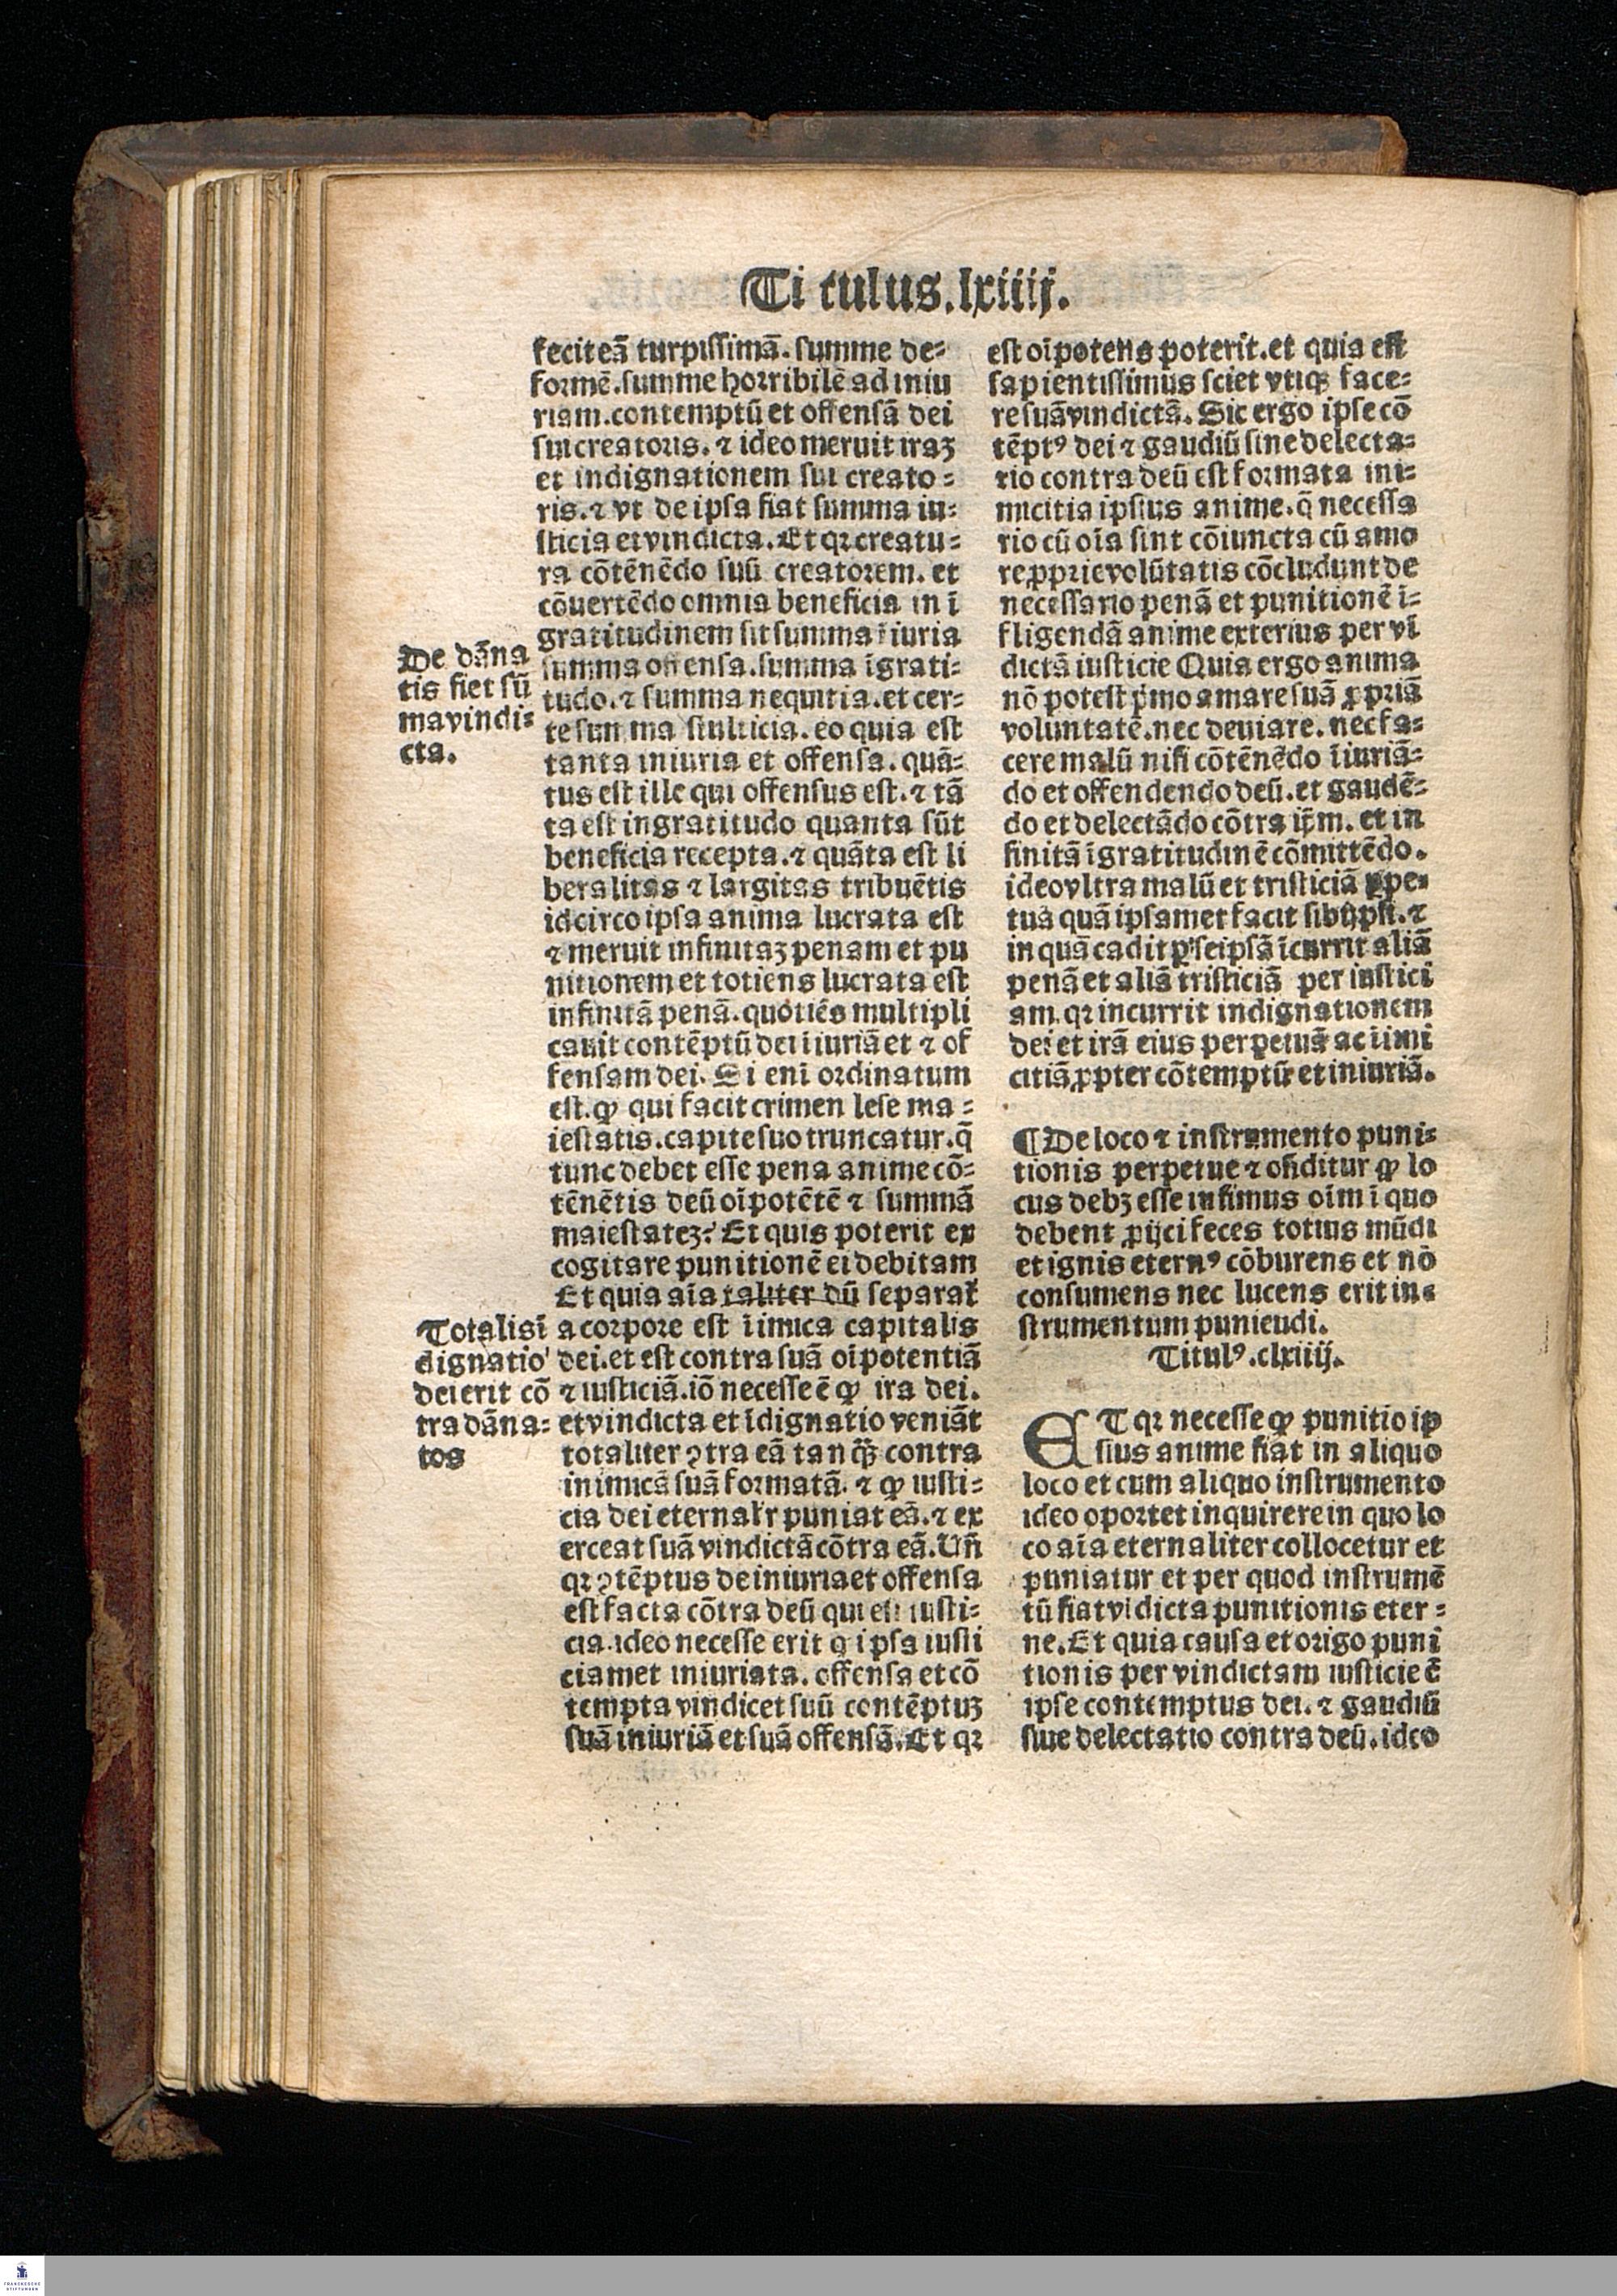 Ti tulus.lxiiij.
fecit eā turpissimā. summe de⸗
formē.summe horribilē ad iniu
riam.contemptū et offensā dei
sui creatoris.⁊ ideo meruit iraꝫ
et indignationem sui creato⸗
ris.⁊ vt de ipsa fiat summa iu⸗
sticia et vindicta. Et qꝛ creatu⸗
ra cōtēnēdo suū creatorem. et
cōuertēdo omnia beneficia in ī
gratitudinem sit summa īiuria
summa offensa.summa īgrati⸗
tudo.⁊ summa nequitia.et cer⸗
te summa stulticia. eo quia est
tanta iniuria et offensa. quā⸗
tus est ille qui offensus est.⁊ tā
ta est ingratitudo quanta sūt
beneficia recepta.⁊ quāta est li
beralitas ⁊ largitas tribuētis
idcirco ipsa anima lucrata est
⁊ meruit infinitaꝫ penam et pu
nitionem et totiens lucrata est
infinitā penā.quotiēs multipli
cauit contēptū dei iiuriā et ⁊ of
fensam dei. Si eni ordinatum
est.ꝙ qui facit crimen lese ma⸗
iestatis.capite suo truncatur.q̄
tunc debet esse pena anime cō⸗
tēnētis deū oīpotētē ⁊ summā
maiestateꝫ? Et quis poterit ex
cogitare punitionē ei debitam
Et quia aīa taliter dū separat̄
a corpore est īimica capitalis
dei.et est contra suā oīpotentiā
⁊ iusticiā.iō necesse ē ꝙ ira dei.
et vindicta et īdignatio veniāt
totaliter ꝯtra eā tan q̄ꝫ contra
inimicā suā formatā.⁊ ꝙ iusti⸗
cia dei eternalr̄ puniat eā.⁊ ex
erceat suā vindictā cōtra eā.Vn̄
qꝛ ꝯtēptus de iniuria et offensa
est facta cōtra deū qui est iusti⸗
cia.ideo necesse erit ꝙ ipsa iusti
ciamet iniuriata. offensa et cō
tempta vindicet suū contēptuꝫ
suā iniuriā et suā offensā. Et qꝛ
De dāna
tis fiet sū
ma vindi⸗
cta.
Totalis ī
dignatio
dei erit cō
tra dāna⸗
tos
est oīpotens poterit.et quia est
sapientissimus sciet vtiqꝫ face⸗
re suā vindictā. Sic ergo ipse cō
tēptꝰ dei ⁊ gaudiū sine delecta⸗
tio contra deū est formata ini⸗
micitia ipsius anime. q̄ necessa
rio cū oīa sint cōiuncta cū amo
re ꝓprie volūtatis cōcludunt de
necessario penā et punitionē ī⸗
fligendā anime exterius per vī
dictā iusticie Quia ergo anima
nō potest p̄mo amare suā ꝓpriā
voluntatē.nec deuiare. nec fa⸗
cere malū nisi cōtēnēdo īiuriā⸗
do et offendendo deū.et gaudē⸗
do et delectādo cōtra ip̄m. et in
finitā īgratitudinē cōmittēdo.
ideo vltra malū et tristiciā ꝑpe⸗
tuā quā ipsamet facit sibijpsi.⁊
in quā cadit ꝑ seipsā īcurrit aliā
penā et aliā tristiciā per iustici
am.qꝛ incurrit indignationem
dei et irā eius perpetuā ac īimi
citiā ꝓpter cōtemptū et iniuriā.
¶De loco ⁊ instrumento puni⸗
tionis perpetue ⁊ oñditur ꝙ lo
cus debꝫ esse infimus oīm ī quo
debent ꝓijci feces totius mūdi
et ignis eternꝰ cōburens et nō
consumens nec lucens erit in⸗
strumentum puniendi.
Titulꝰ.clxiiij.
ET qꝛ necesse ꝙ punitio ip
sius anime fiat in aliquo
loco et cum aliquo instrumento
ideo oportet inquirere in quo lo
co aīa eternaliter collocetur et
puniatur et per quod instrumē
tū fiat vīdicta punitionis eter⸗
ne. Et quia causa et origo puni
tionis per vindictam iusticie ē
ipse contemptus dei. ⁊ gaudiū
siue delectatio contra deū. ideo
FRANCKESCHE
STIFTUNGEN